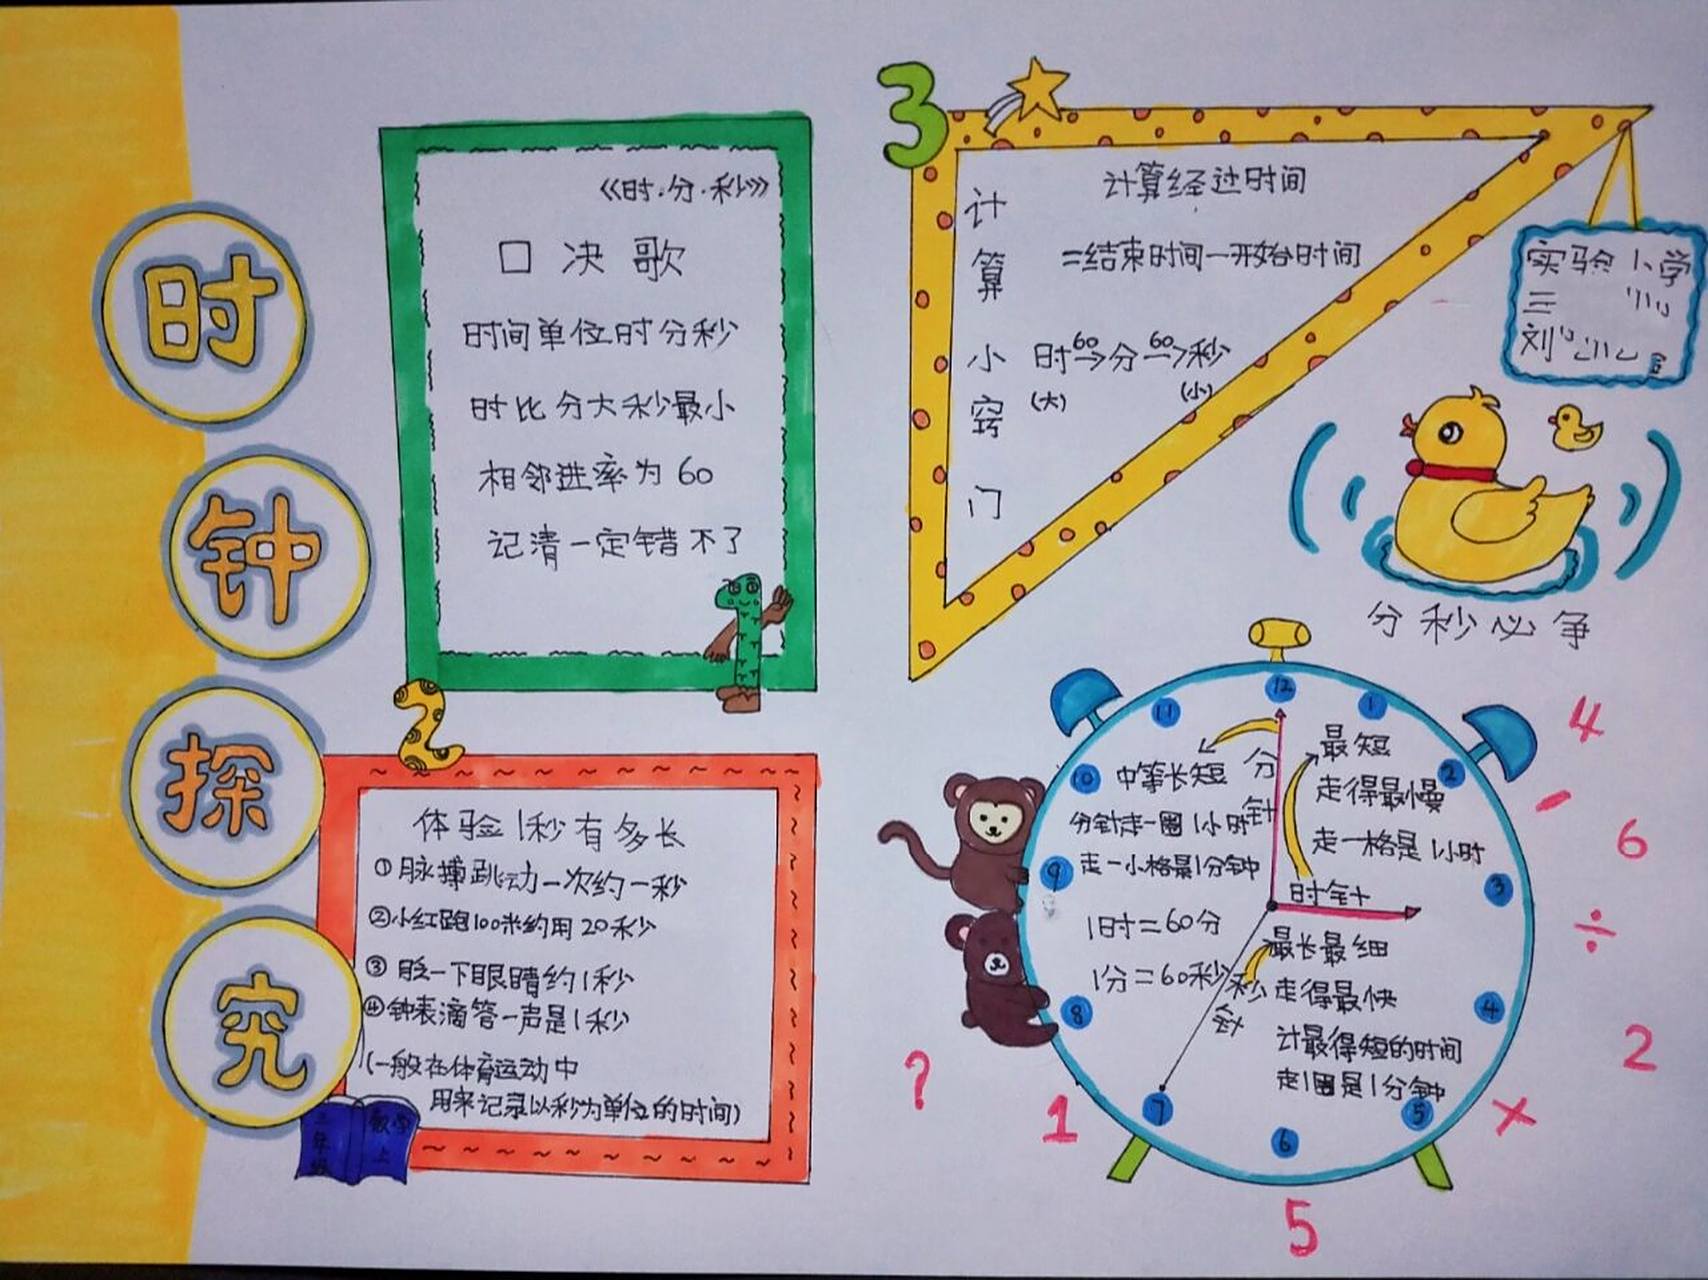 时
钟
探
究
《时·分·秒》
口决歌
时间单位时分秒
时比分大秒最小
相邻进率为60
记清一定错不了
2
体验1秒有多长
①脉搏跳动一次约一秒
②小红跑100米约用20秒
③眨一下眼睛约1秒
④钟表滴答一声是1秒
(一般在体育运动中
用来记录以秒为单位的时间)
三年级
数学
上
3
计算小窍门
计算经过时间
=结束时间-开始时间
时60→分60→秒
(大) (小)
实验小学
三
刘
分秒必争
12
1
2
3
4
5
6
7
8
9
10
11
分针
中等长短
分针走一圈1小时
走一小格是1分钟
1时=60分
1分=60秒
最短
走得最慢
走一格是1小时
时针
秒针
最长最细
走得最快
计最得短的时间
走1圈是1分钟
4
-
6
÷
2
×
5
1
?